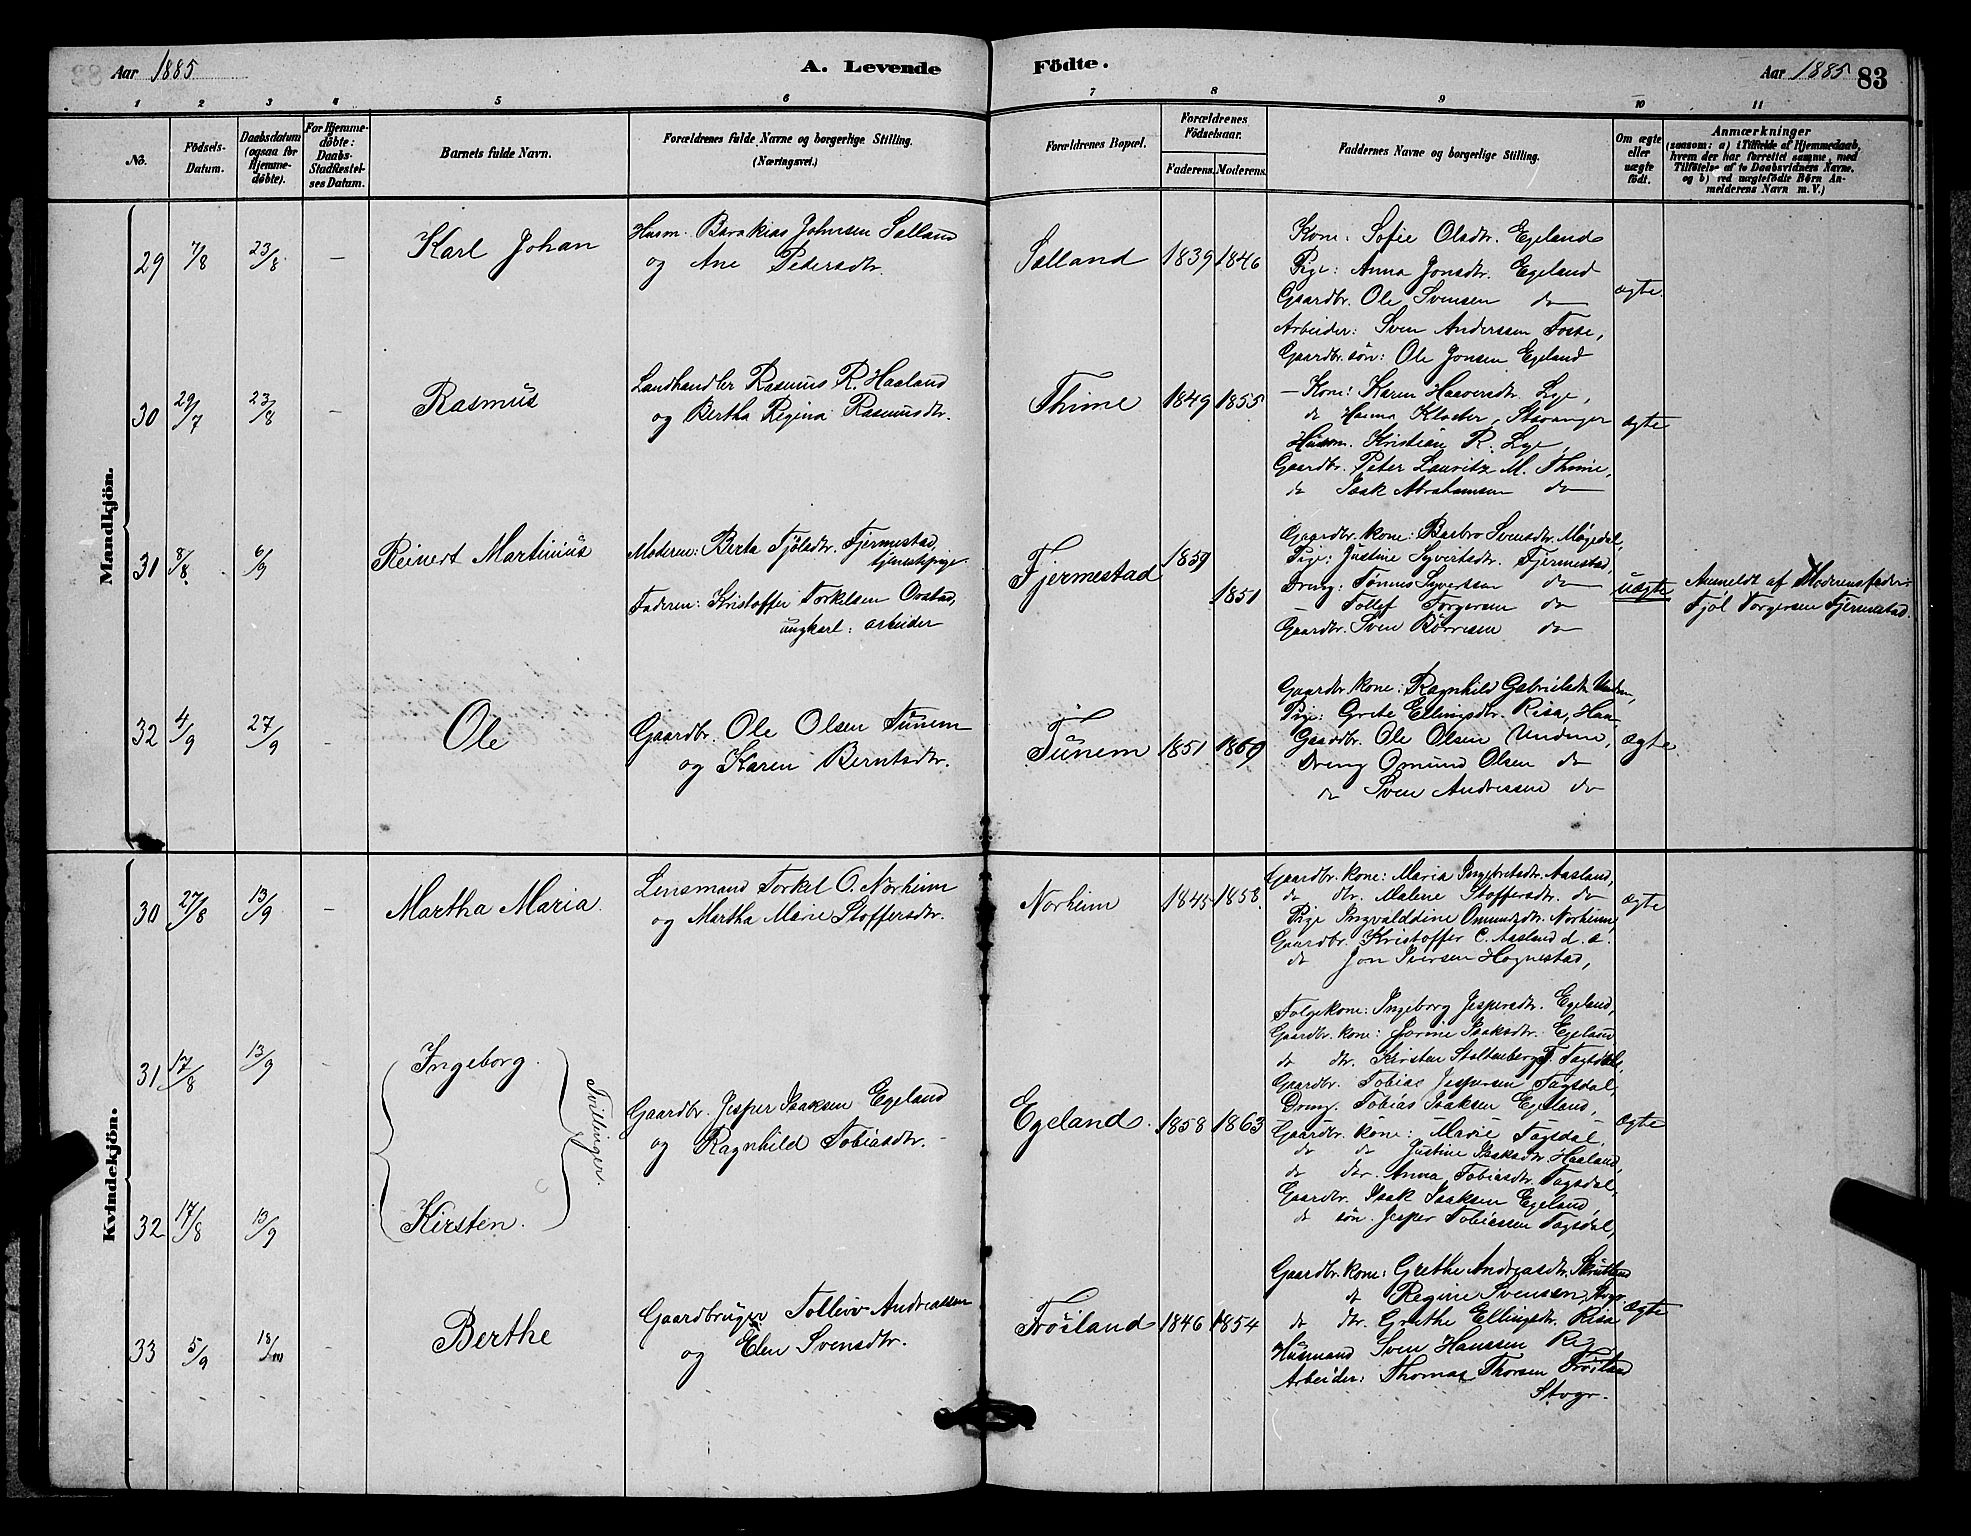 Aar 1885
A. Levende
Födte.
Aar 1885
83
1 2 3 4 5 6 7 8 9 10 11
No.
Födsels-
Datum.
Daabsdatum
(ogsaa for
Hjemme-
döbte).
For Hjemme-
döbte:
Daabs-
Stadfæstel-
ses Datum.
Barnets fulde Navn.
Forældrenes fulde Navne og borgerlige Stilling.
(Næringsvei.)
Forældrenes Bopæl.
Forældrenes
Födselsaar.
Faderens. Moderens.
Faddernes Navne og borgerlige Stilling.
Om ægte
eller
uægte
födt.
Anmærkninger
(saasom: a) i Tilfælde af Hjemmedaab,
hvem der har forrettet samme, med
Tilföielse af to Daabsvidners Navne.
og b) ved uægtefödte Børn An-
melderens Navn m. V.)
Mandkjön.
29 7/8 23/8 –
Karl Johan
Husm. Barakias Johnsen Salland
og Ane Pedersdtr.
Salland 1839 1846
Kone: Sofie Olsdtr. Egeland
Pige: Anna Jonsdtr. Egeland
Gaardbr. Ole Svensen do
Arbeider: Sven Anderssen Foske,
Gaardbr. søn: Ole Jonsen Egeland
ægte.
30 29/7 23/8 –
Rasmus
Landhandler Rasmus R. Haaland
og Bertha Regina Rasmusdtr.
Thime 1849 1855
– Kone: Karen Haaversdtr. Lye,
do Hanna Kloster, Stavanger
Husm. Kristian R. Lye,
Gaardbr. Peter Lauritz M. Thime,
do Isak Abrahamsen do
ægte
31 8/8 6/9
Reinert Martinius
Moderen: Berta Fjølsdtr. Fjermestad,
tjenestepige
Faderen: Kristoffer Torkelsen Orstad,
ungkarl: arbeider
Fjermestad 1859
1851
Gaardbr. kone: Barbro Svensdtr. Møgedal,
Pige: Justine Syvertsdtr. Fjermestad,
Dreng: Tønnes Syvertsen do
– Tollef Torgersen do
Gaardbr. Sven Børresen do
uægte
Anmeldt af Moderensfader
Fjøl Torgersen Fjermestad.
32 4/9 27/9 –
Ole
Gaardbr. Ole Olsen Tunem
og Karen Berntsdtr.
Tunem 1851 1860
Gaardbr. kone: Ragnhild Gabrielsdtr
Pige: Grete Ellingsdtr. Risa, Haa
Gaardbr. Ole Olsen Undem,
Dreng Omund Olsen do
do Sven Andressen do
ægte
Kvindekjön.
30 27/8 13/9 –
Martha Maria.
Lensmand Torkel O. Norheim
og Martha Marie Stoffersdtr.
Norheim 1845 1858.
Gaardbr. kone: Maria Ingebretsdtr. Aasland,
do dtr. Malene Stoffersdtr. do
Pige Ingvalddine Omundsdtr. Norheim,
Gaardbr. Kristoffer C. Aasland d. æ.
do Jon Iversen Hognestad,
ægte
31 17/8 13/9 –
Ingeborg.
Tvillinger.
Gaardbr. Jesper Isaksen Egeland
og Ragnhild Tobiasdtr. –
Egeland. 1858 1863
Folgekone: Ingeborg Jespersdtr. Egeland,
Gaardbr. kone: Jorine Isaksdtr. Egeland
do dtr. Kirsten Stoltenberg T. Tagsdal,
Gaardbr. Tobias Jespersen Tagsdal,
Dreng. Tobias Isaksen Egeland, –
Gaardbr. kone: Marie Tagsdal.
do do Justine Isaksdtr. Haaland,
do dtr. Anna Tobiasdtr. Tagsdal,
Gaardbr. Isak Isaksen Egeland,
do søn. Jesper Tobiassen Tagsdal,
ægte
32 17/8 13/9
Kirsten.
33 5/9 18/10 –
Berthe
Gaardbruger Tolleiv Andreassen
og Elen Svensdtr.
Frøiland 1846 1854
Gaardbr. kone: Grethe Andreasdtr.
do Regine Svensen,
do dtr. Grethe Ellingsdtr. Risa
Husmand Sven Hanssen Re,
Arbeider: Thomas Thorsen Frøiland
Stvgr.
ægte